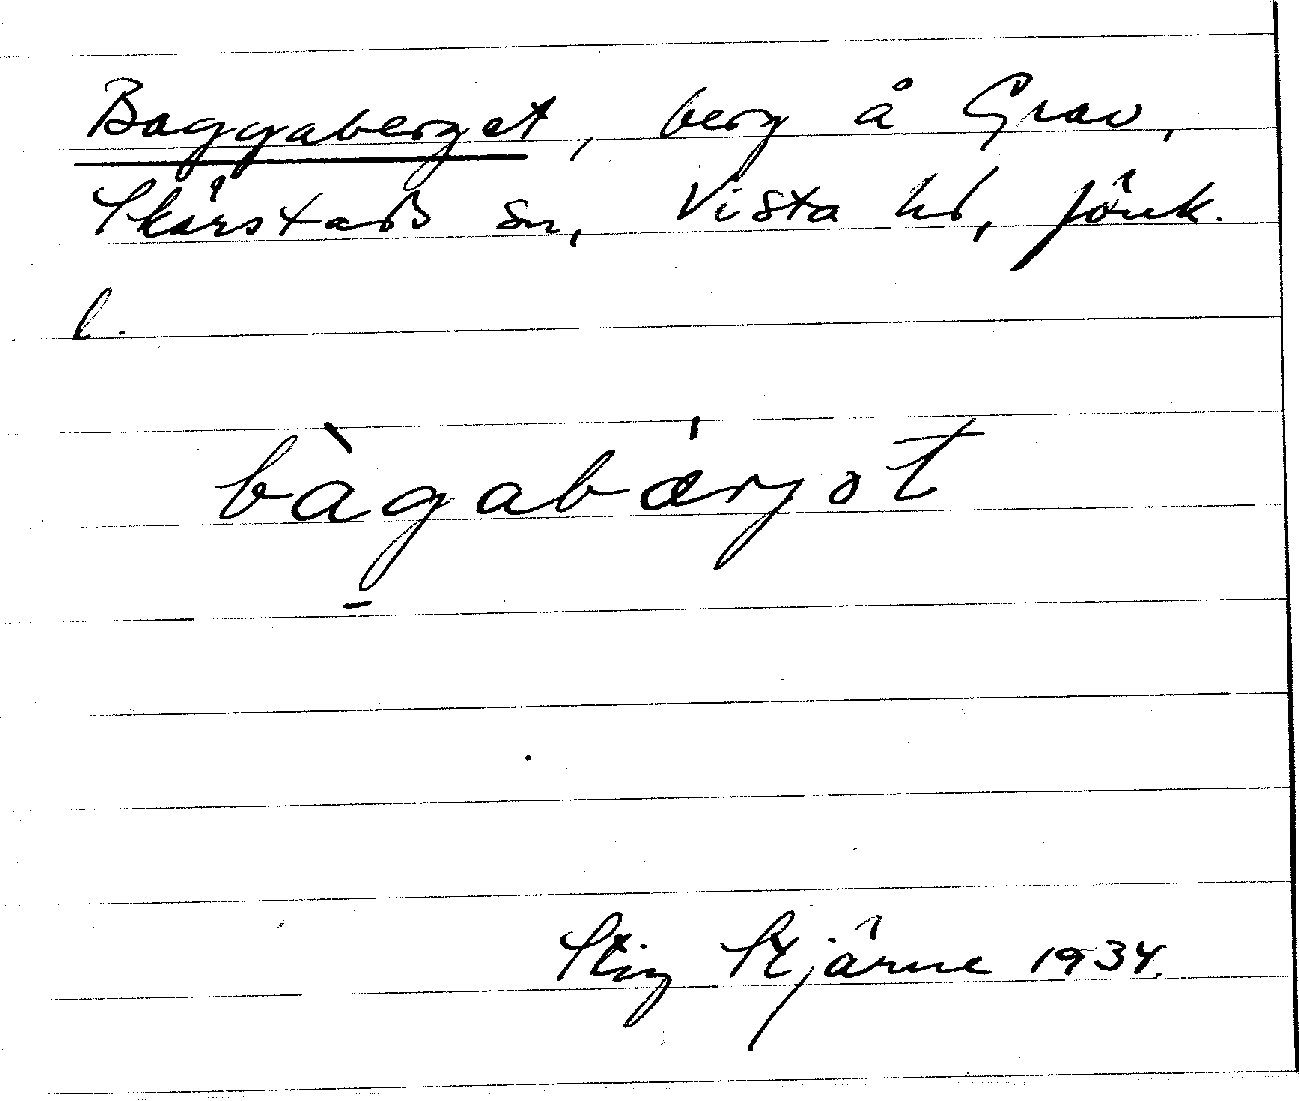 Baggaberget, berg å Grav,
Skärstads sn, Vista hd, Jönk.
l.
bàgabǽrjət
Stig Stjärne 1934.